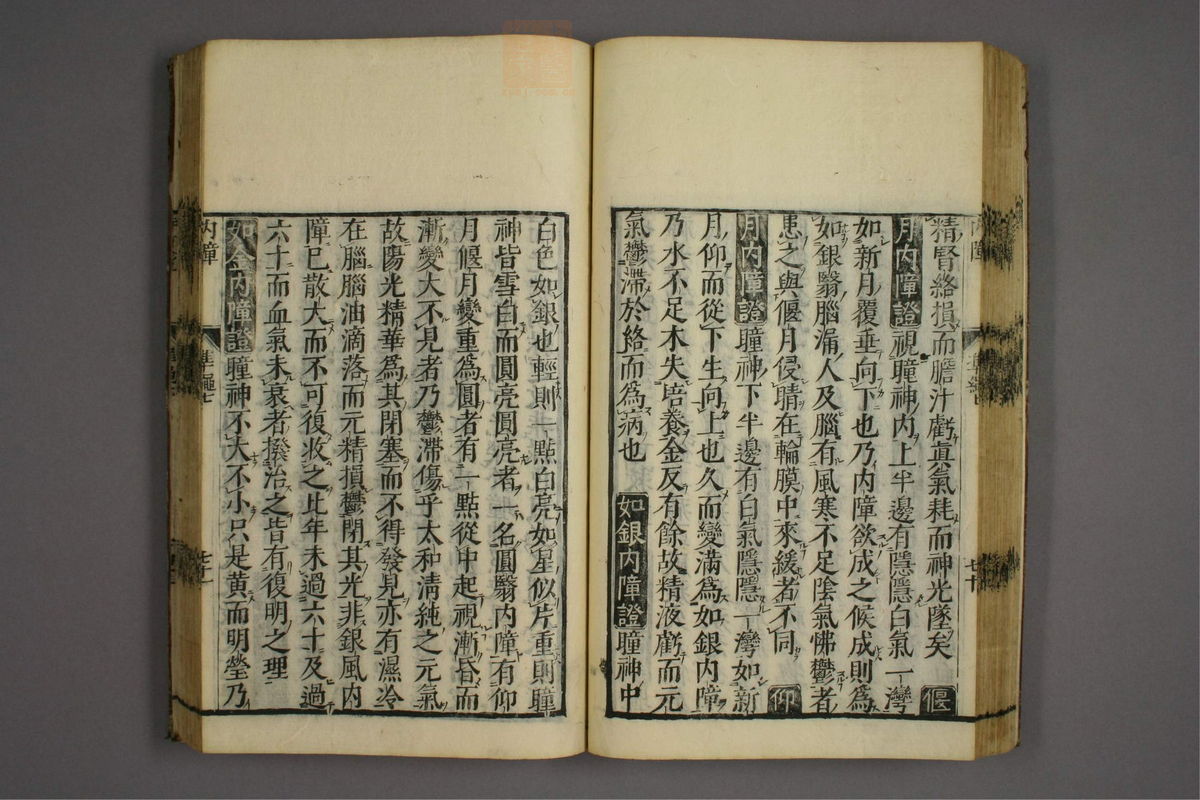 精腎絡損而膽汁虧眞氣耗而神光墜矣 偃
月内障證視瞳神内上半邊有隱隱白氣一灣
如新月覆垂向下也乃内障欲成之候成則爲
如銀翳腦漏人及腦有風寒不足陰氣怫鬱者
患之與偃月侵睛在輪膜中來緩者不同 仰
月内障證瞳神下半邊有白氣隱隱一灣如新
月仰而從下生向上也久而變滿爲如銀内障
乃水不足木失培養金反有餘故精液虧而元
氣鬱滯於絡而爲病也 如銀内障證瞳神中
白色如銀也輕則一點白亮如星似片重則瞳
神皆雪白而圓亮圓亮者一名圓翳内障有仰
月偃月變重爲圓者有一點從中起視漸昏而
漸變大不見者乃鬱滯傷乎太和淸純之元氣
故陽光精華爲其閉塞而不得發見亦有濕冷
在腦腦油滴落而元精損鬱閉其光非銀風内
障已散大而不可復收之比年未過六十及過
六十而血氣未衰者撥治之皆有復明之理
如金内障證瞳神不大不小只是黄而明瑩乃
内障
七十一